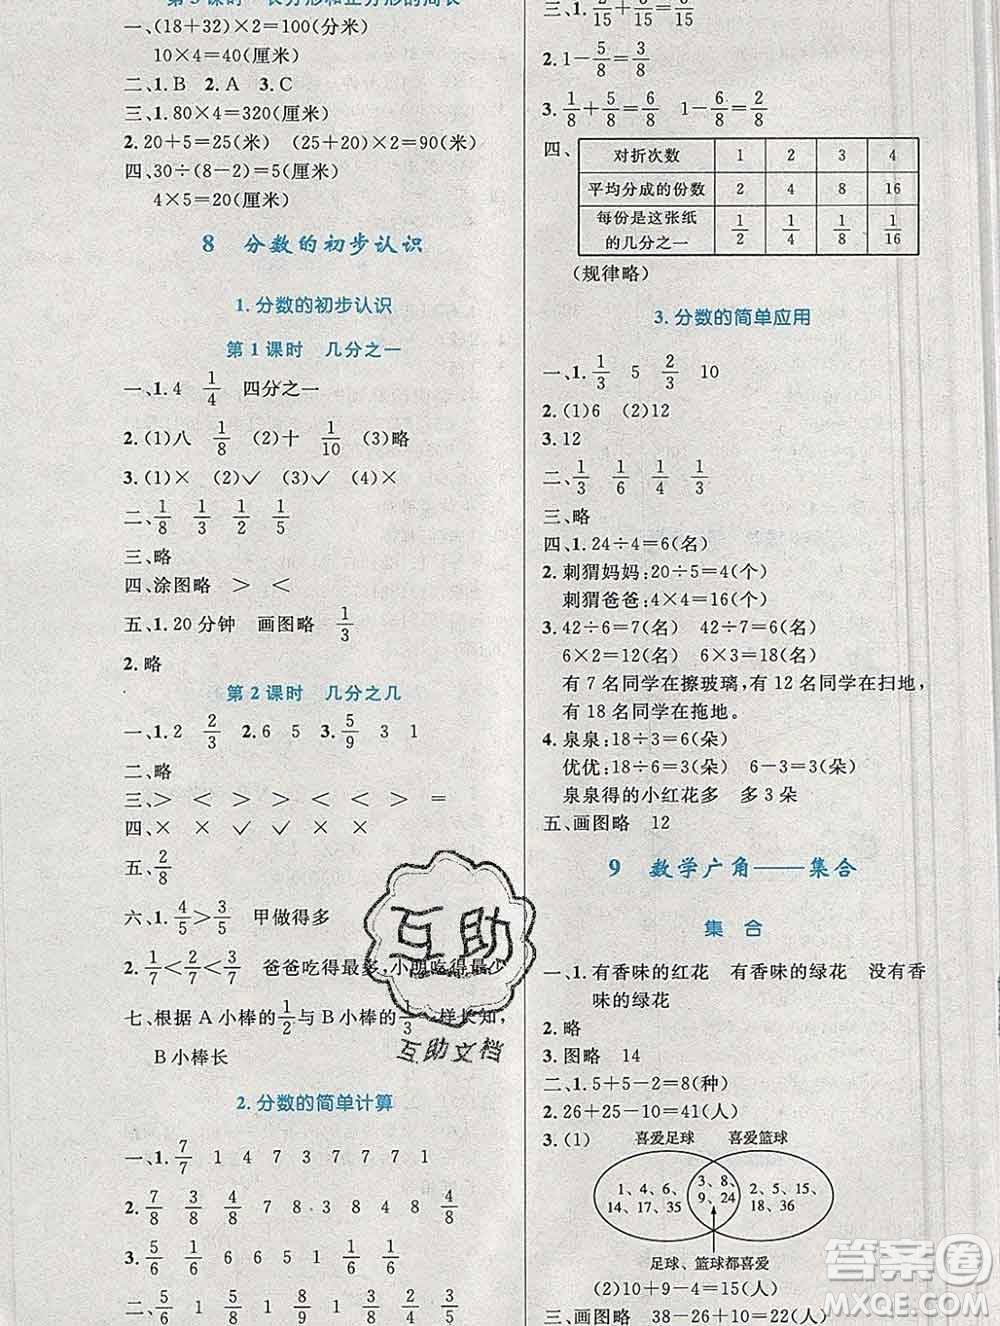 第3课时 长方形和正方形的周长
一、(18+32)×2=100(分米)
10×4=40(厘米)
二、1.B 2.A 3.C
三、1.80×4=320(厘米)
2.20+5=25(米) (25+20)×2=90(米)
四、30÷(8-2)=5(厘米)
4×5=20(厘米)
8 分数的初步认识
1.分数的初步认识
第1课时 几分之一
一、1.4 1/4 四分之一
2.(1)八 1/8 (2)十 1/10 (3)略
3.(1)× (2)✓ (3)✓ (4)×
二、1/8 1/3 1/2 1/5
三、略
四、涂图略 > <
五、1.20分钟 画图略 1/3
2.略
第2课时 几分之几
一、1.2 2/3 2.6 5 3.5/9 3 1
二、略
三、> < > < > < > =
四、× × ✓ ×
五、2/8
六、1.4/5>3/5 甲做得多
2.1/7<2/7<3/7 爸爸吃得最多,小朋吃得最少
七、根据A小棒的1/2与B小棒的1/3一样长知,
B小棒长
2.分数的简单计算
一、1.7/7 1 4 3 7 3 4 7 7 7 1
2.7/8 3/8 4/8 7 3 4 7/8 3/8 4/8
3.5/6 1/6 6 1 5 6/6 1/6 5/6
二、1/6 4/5 5/8 8/9 5/10 2/4 2/7
三、1. /15+ /15= /15
2.1-5/8=3/8
3.1/8+5/8=6/8 1-6/8=2/8
四、 对折次数 1 2 3 4
平均分成的份数 2 4 8 16
每份是这张纸的几分之一 1/2 1/4 1/8 1/16
(规律略)
3.分数的简单应用
一、1.1/3 5 2/3 10
2.(1)6 (2)12
3.12
二、1/3 1/6 1/4 2/3
三、略
四、1.24÷4=6(名)
2.刺猬妈妈:20÷5=4(个)
刺猬爸爸:4×4=16(个)
3.42÷6=7(名) 42÷6=7(名)
6×2=12(名) 6×3=18(名)
有7名同学在擦玻璃,有12名同学在扫地,
有18名同学在拖地。
4.泉泉:18÷3=6(朵)
优优:18÷6=3(朵) 6-3=3(朵)
泉泉得的小红花多 多3朵
五、画图略 12
9 数学广角——集合
集 合
一、1.有香味的红花 有香味的绿花 没有香
味的绿花
2.略
3.图略 14
二、1.5+5-2=8(种)
2.26+25-10=41(人)
3.(1) 喜爱足球 喜爱篮球
1、4、6、14、17、35 3、8、9、24 2、5、16、18、36
足球、篮球都喜爱
(2)10+9-4=15(人)
三、画图略 38-26+10=22(人)
互助
互助文档
答案圈
MXQE.COM